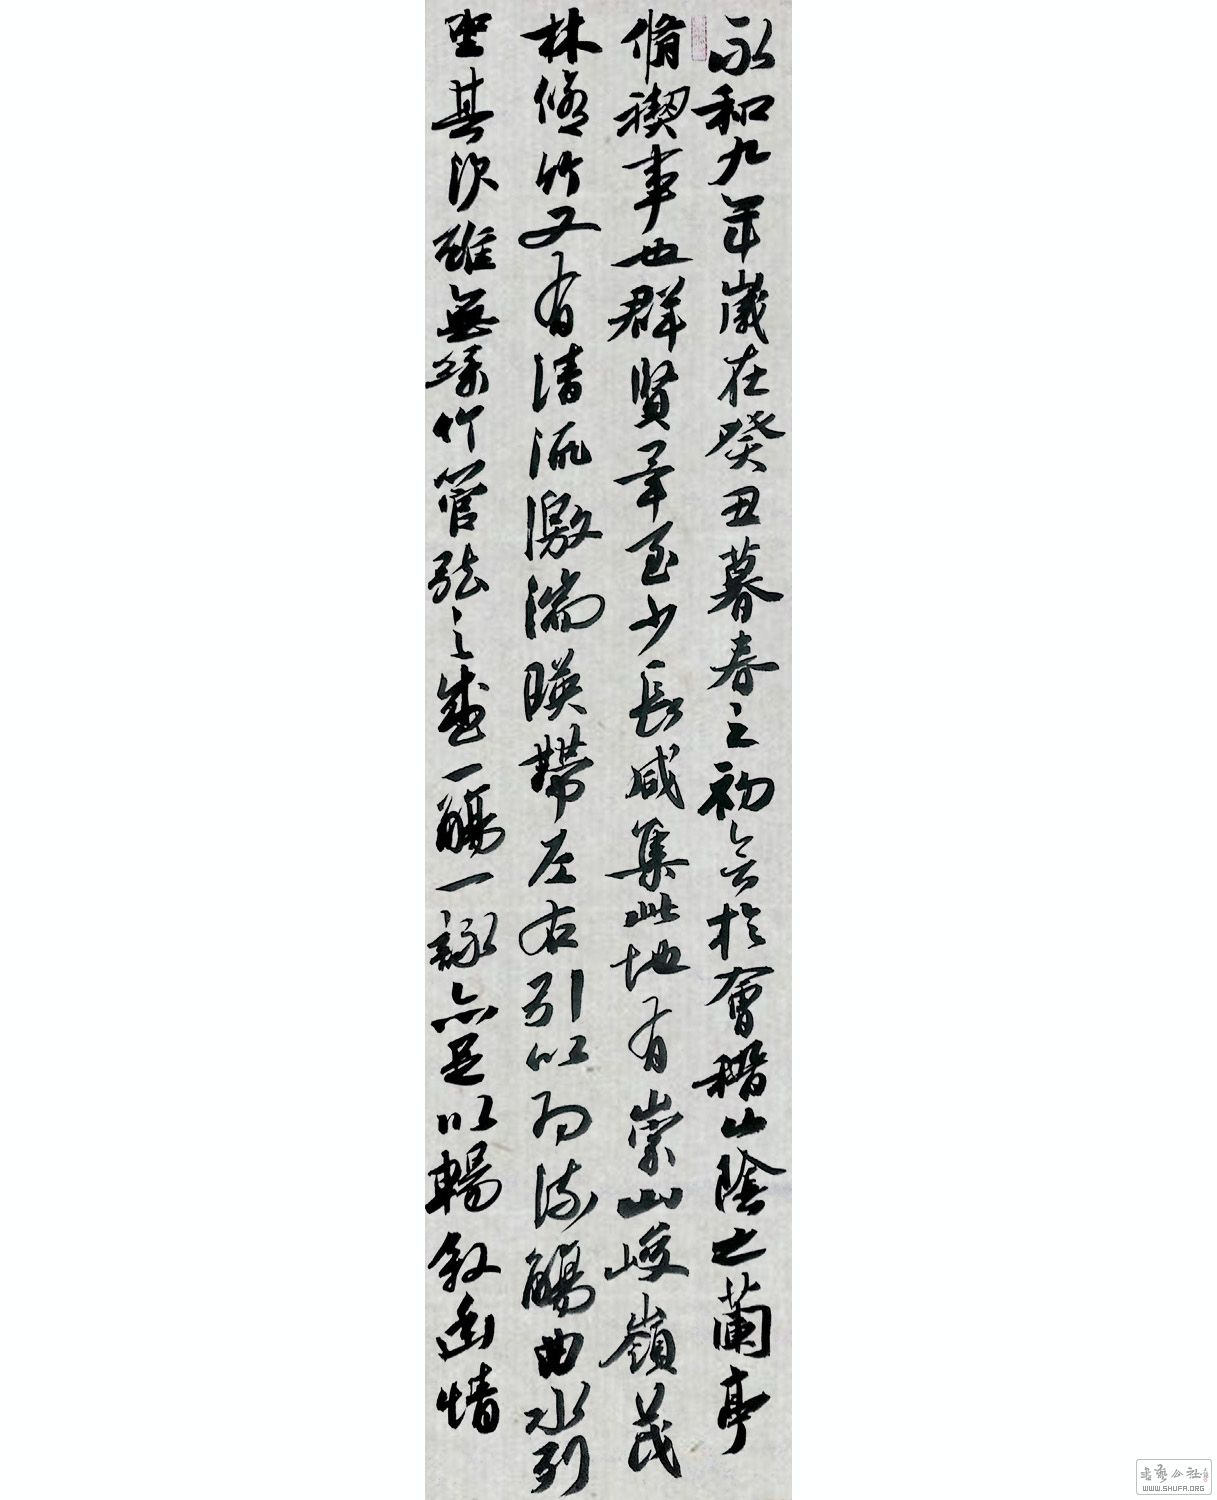 永和九年歲在癸丑暮春之初會於會稽山陰之蘭亭
脩禊事也群賢畢至少長咸集此地有崇山峻嶺茂
林脩竹又有清流激湍暎帶左右引以為流觴曲水列
坐其次雖無絲竹管弦之盛一觴一詠亦足以暢敘幽情
書藝公社
WWW.SHUFA.ORG